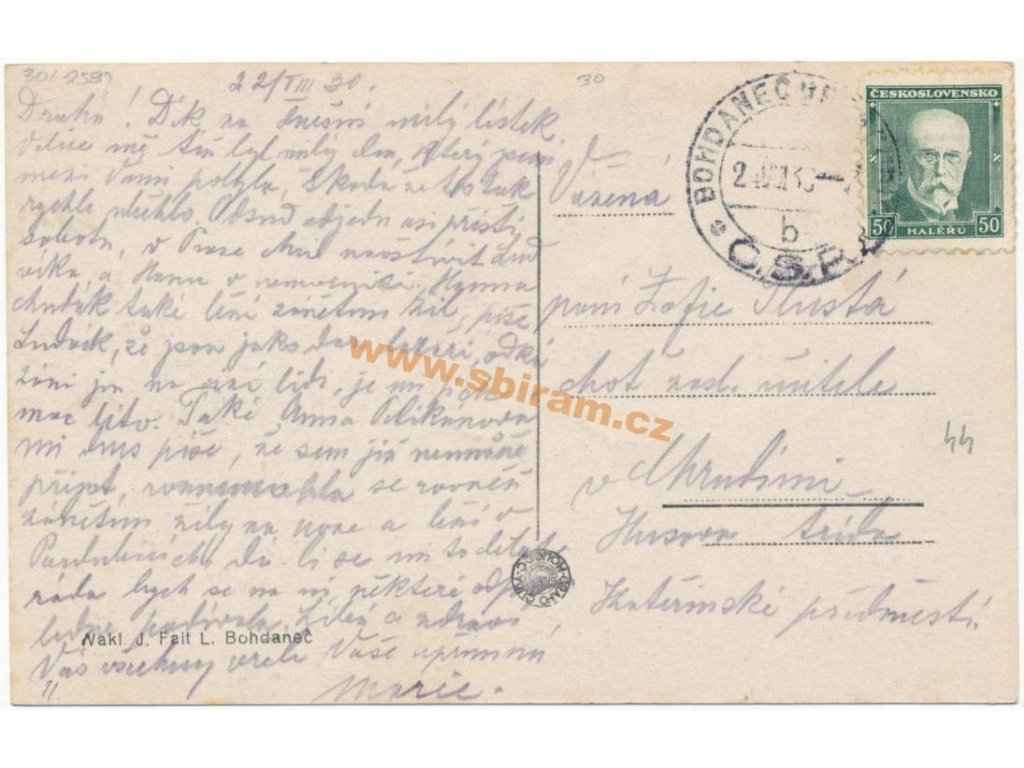 30/2589
30
22/VIII 30.
Drahá! Dík za dnešní milý lístek
Velice mě těšil byl milý den, který jsem
mezi Vámi pobyla, škoda že to tak
rychle uteklo. Odsud odjedu asi příští
sobotu, v Praze chci navštívit Lud
víka, a Hanu v nemocnici. Hynna
chudák také leží zánětem žil, píše
Ludvík, že jsou jako dva
na lidi, je mi jich
moc líto. Také Anna Pelikánova
mi dnes píše, že sem již nemůže
přijet, roznemohla se rovněž
zánětem žíly na noze a leží v
Pardubicích. Dá-li se mi to dělat,
ráda bych se na ni některé odpo
ledne podívala. Líbá a zdraví
Vás všechny vřele Vaše upřímná
Marie.
11
ČESKOSLOVENSKO
50 HALÉŘŮ 50
BOHDANEČ
b
Č.S.R.
Vážená
paní Žofie Tlustá
choť zasl. učitele
v Chrudimi
Husova třída
Kateřinské předměstí.
44
Nakl J. Fait L. Bohdaneč
www.sbiram.cz